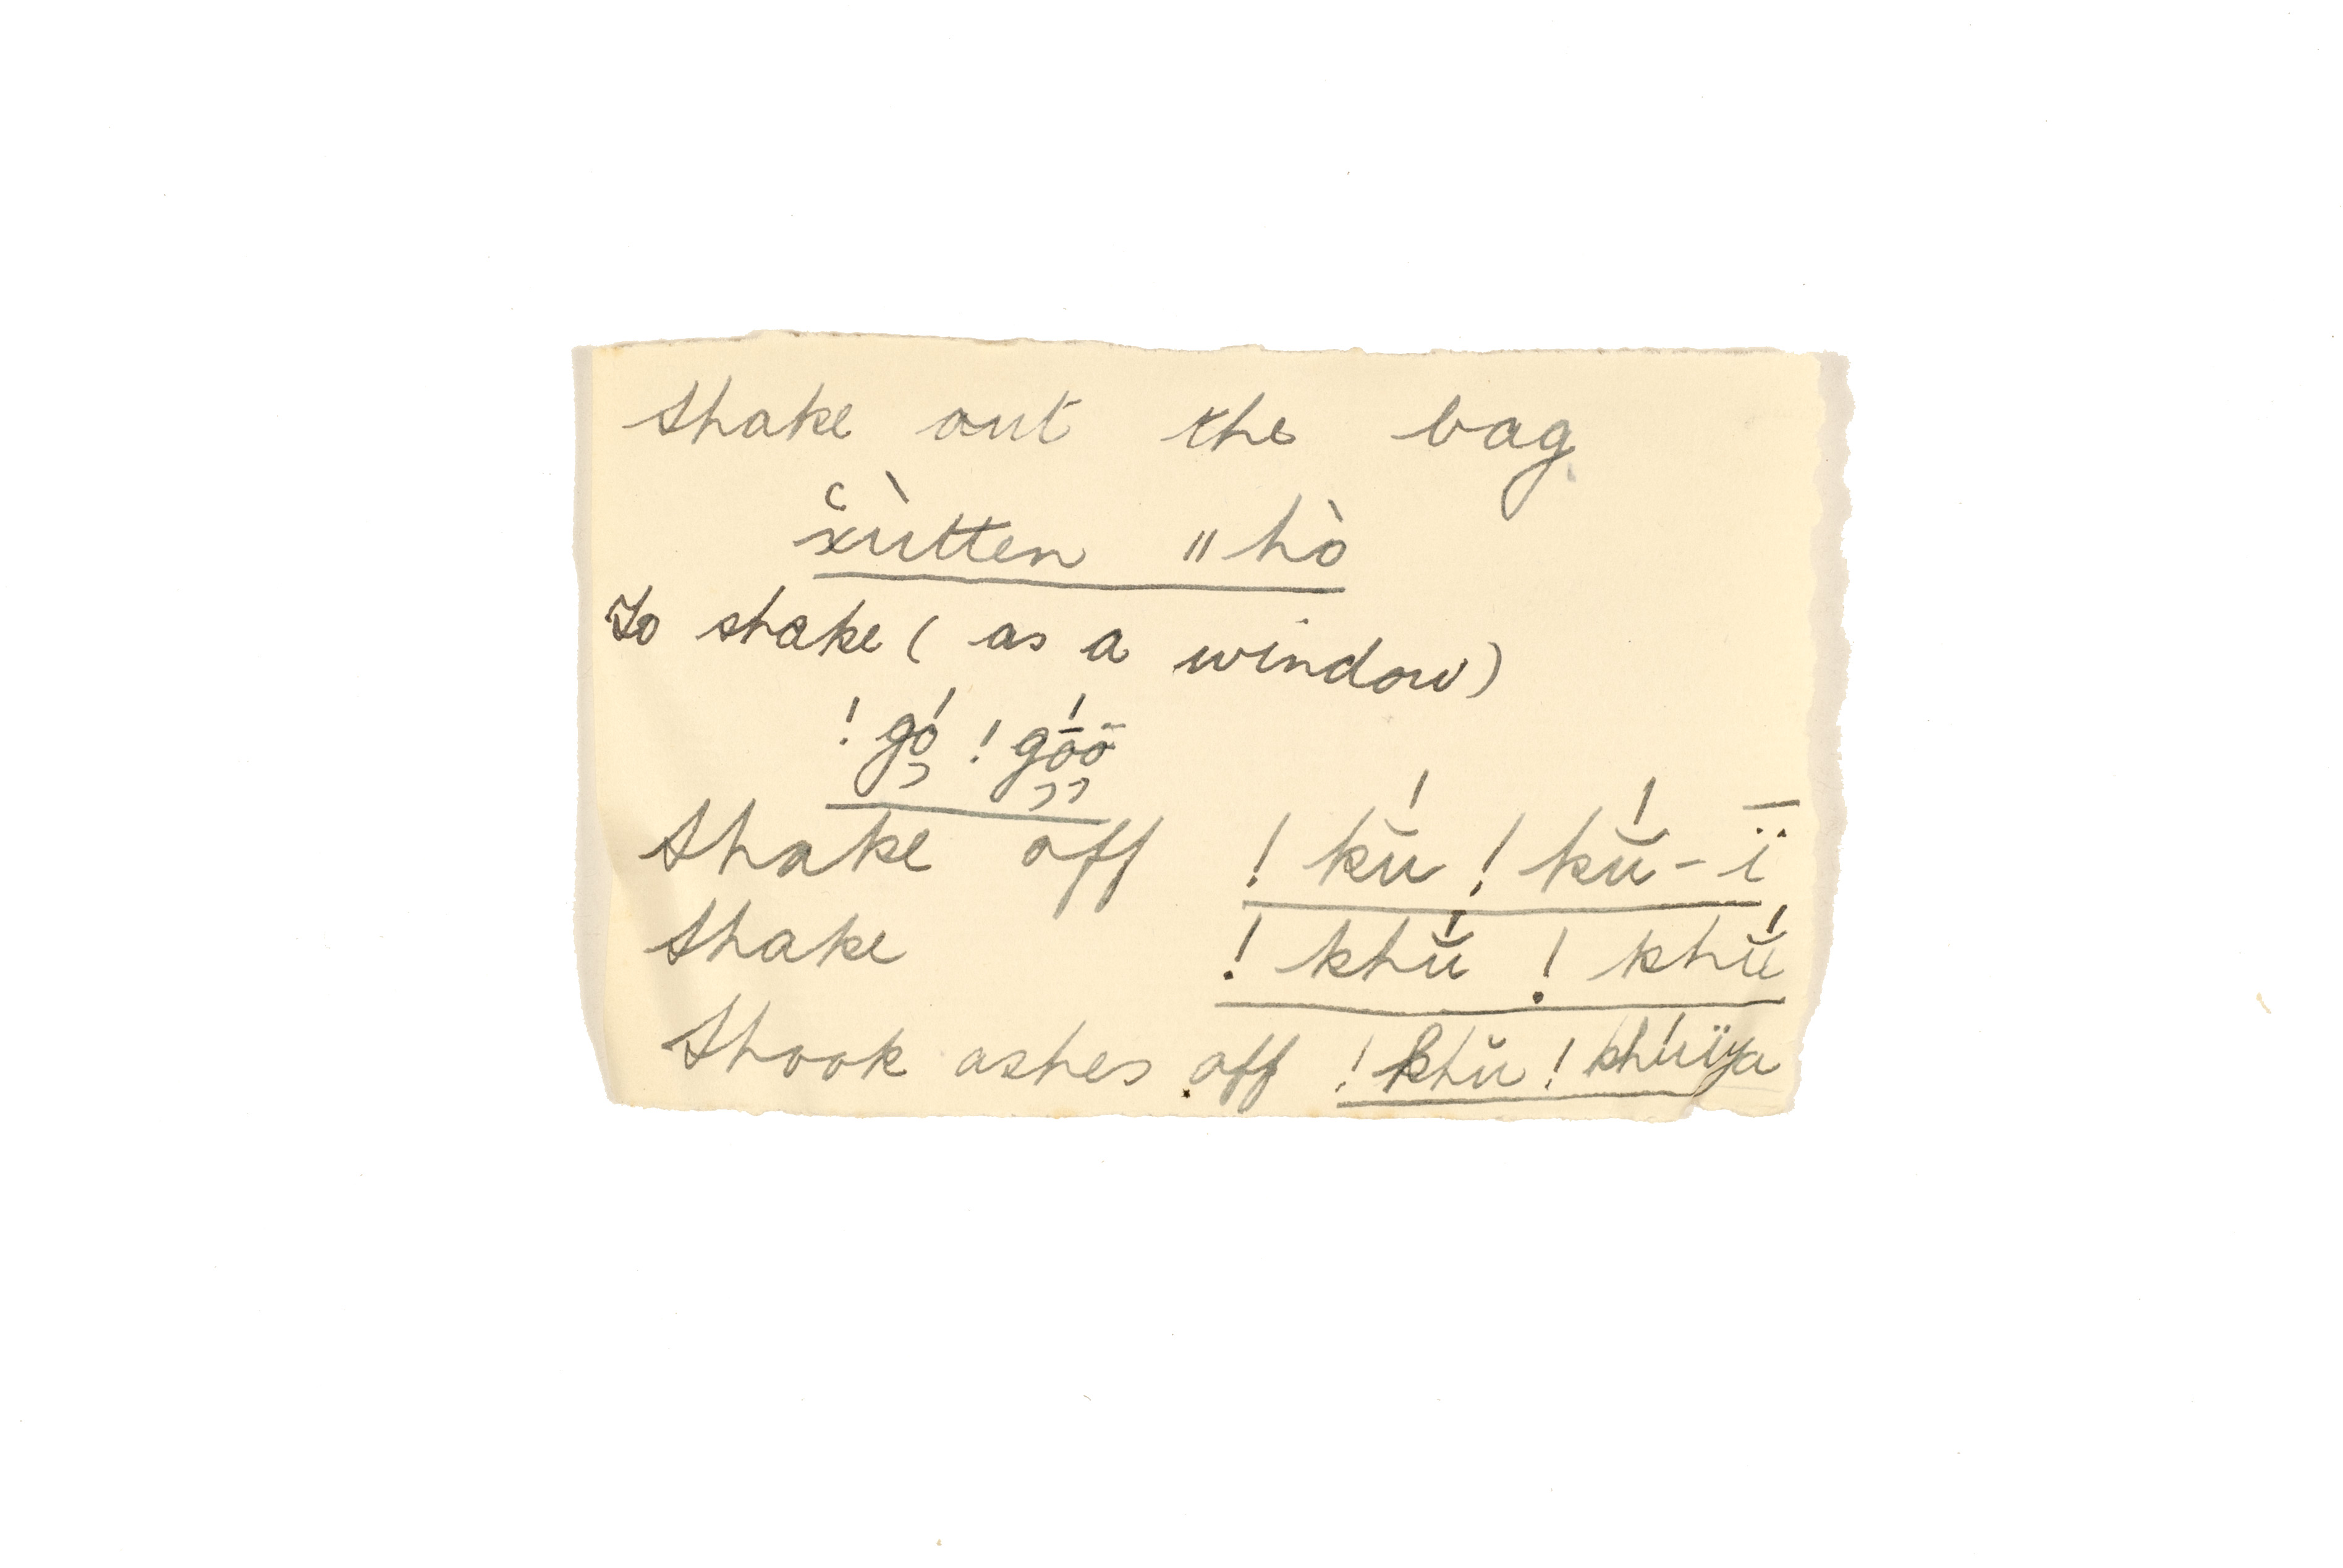 Shake out the bag
x̆ùtten ǁhò
To shake (as a window)
!gó̦ !gṓ̦ö̦
Shake off !kŭ́ !kŭ́-ï̄
Shake !khŭ́ !khŭ́
Shook ashes off !khŭ !khúïya